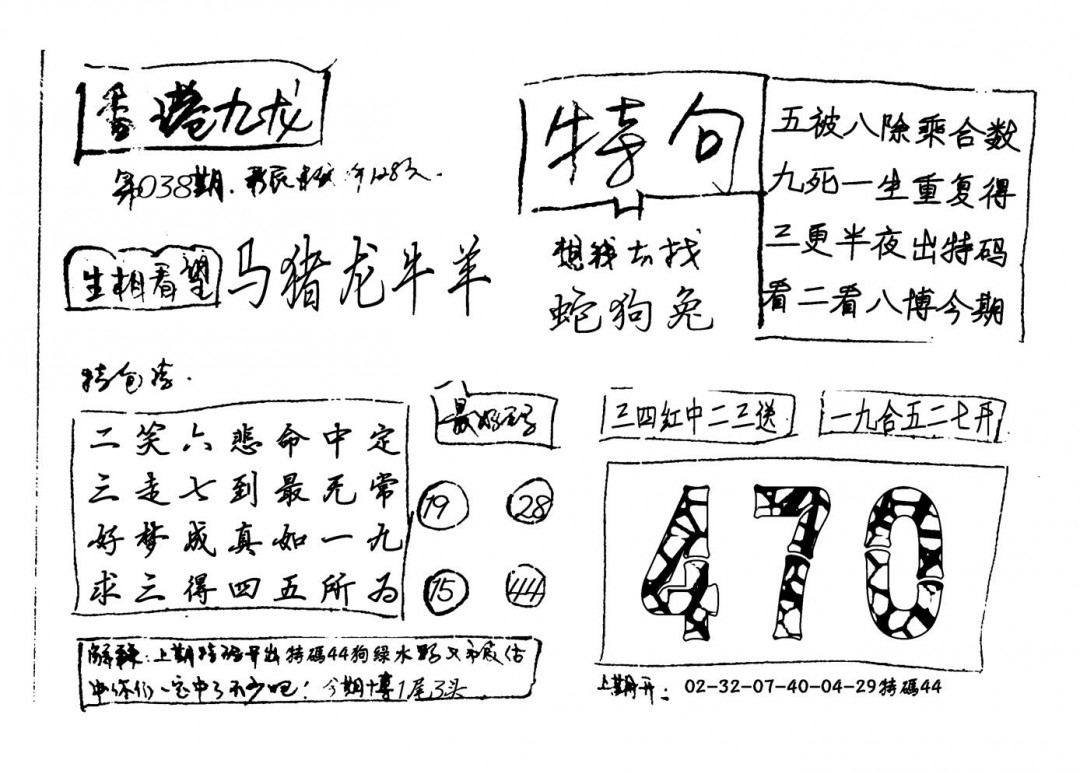 香港九龙
第038期.
生相看望
马猪龙牛羊
特句
想我去找
蛇狗兔
五被八除乘合数
九死一生重复得
三更半夜出特码
看二看八博今期
特包
二笑六悲命中定
三走七到最无常
好梦成真如一九
求三得四五所为
最好
19
28
15
44
三四红中二三送
一九合五二七开
470
解釋:上期特码开出特碼44狗綠水
中你们一定中了不少吧!今期十博1尾3头
上期开:02-32-07-40-04-29特碼44